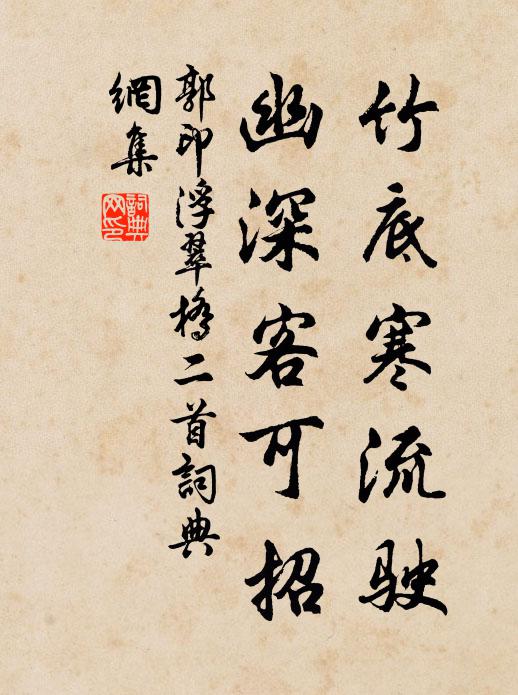 竹底寒流駛
幽深客可招
郭印浮翠橋二首詞典
網集
詞典
网印